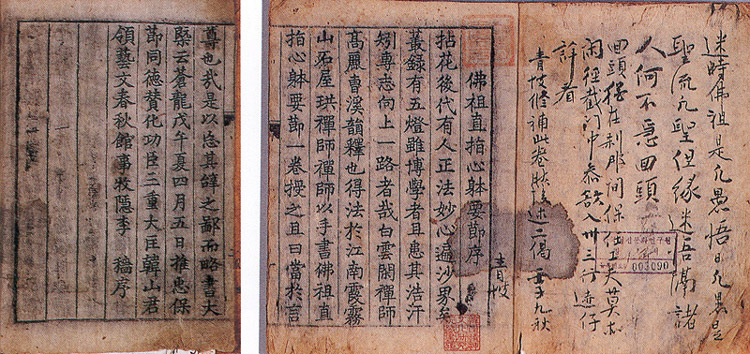 迷時佛祖是凡愚悟日凡愚是
聖流凡聖但緣迷吾滿諸
人何不急回頭
回頭在刹那間保任工夫莫
閑徑截門中入卅三行
詳看
青坡修補此卷迷二偈 壬子九秋
003090
青坡
佛祖直指心躰要節序
拈花後代有人正法妙心遍沙界矣
叢録有五燈雖博學者且患其浩汗
矧專志向上一路者哉白雲閣禪師
高風曹溪韻釋也得法於江南霞霧
山石屋珙禪師禪師以手書佛祖直
指心躰要節一卷授之且曰當於言
尊也我是以忘其辭之鄙而略書大
槩云蒼龍戊午夏四月五日推忠保
節同德賛化功臣三重大匡韓山君
領藝文春秋館事牧隱李 穡序